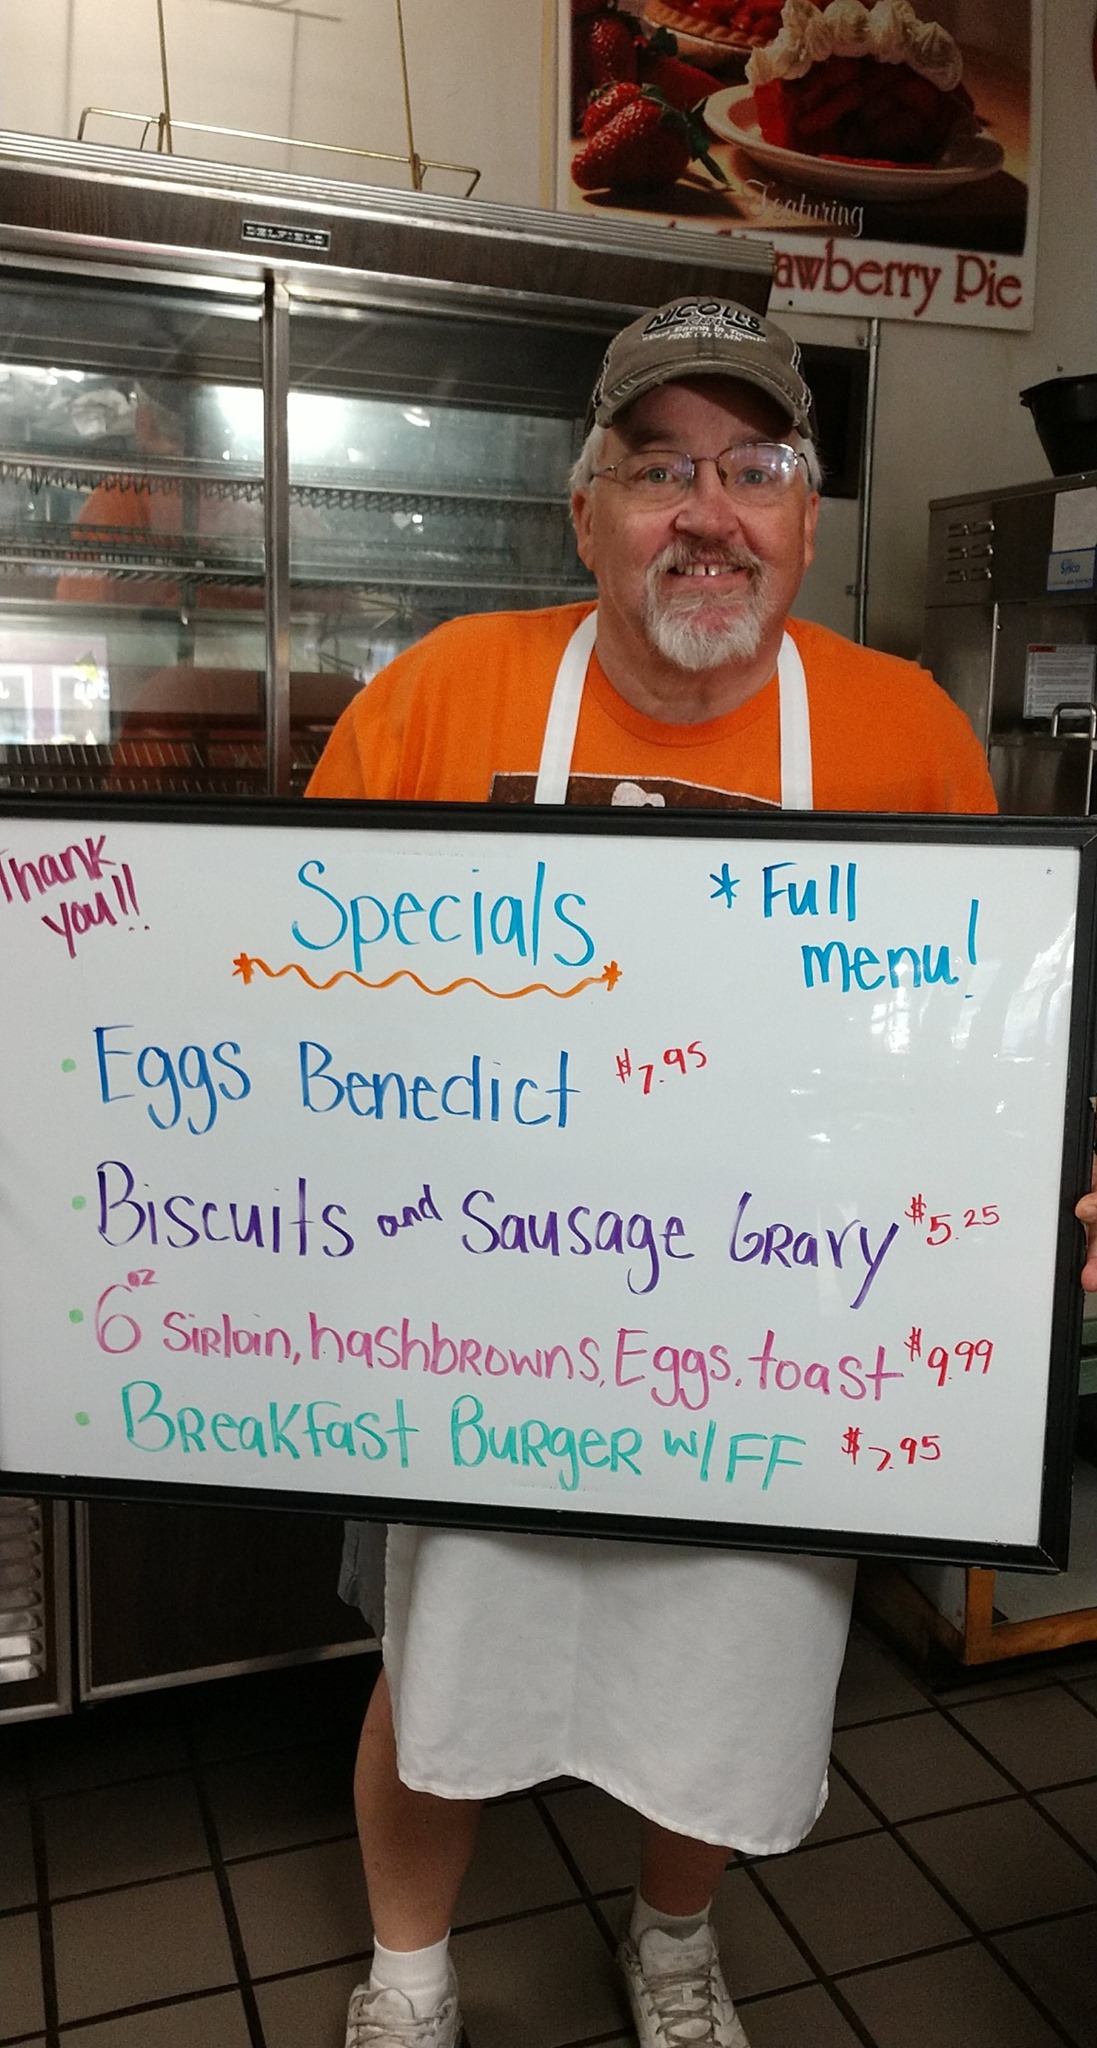 Featuring
Strawberry Pie
DELFIELD
NICOLL'S
CAFE
"Best Bacon In Town"
PINE CITY, MN
Sysco
Thank
you!!
Specials
* Full
menu!
• Eggs Benedict $7.95
• Biscuits and Sausage Gravy $5.25
• 6oz Sirloin, hashbrowns, Eggs, toast $9.99
• Breakfast Burger w/ FF $7.95